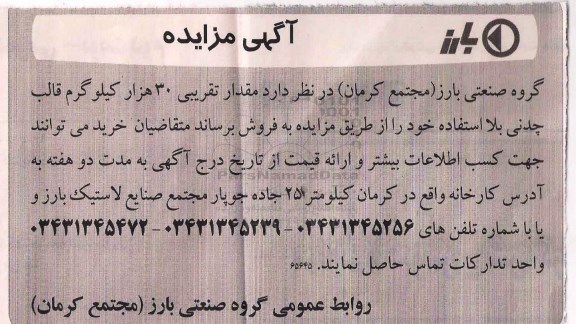 بارز
آگهی مزایده
گروه صنعتی بارز(مجتمع کرمان) در نظر دارد مقدار تقریبی ۳۰ هزار کیلو گرم قالب
چدنی بلا استفاده خود را از طریق مزایده به فروش برساند متقاضیان خرید می توانند
جهت کسب اطلاعات بیشتر و ارائه قیمت از تاریخ درج آگهی به مدت دو هفته به
آدرس کارخانه واقع در کرمان کیلومتر ۲۵ جاده جوپار مجتمع صنایع لاستیک بارز و
یا با شماره تلفن های ۰۳۴۳۱۳۴۵۲۵۶ – ۰۳۴۳۱۳۴۵۲۳۹ – ۰۳۴۳۱۳۴۵۴۷۲
واحد تدارکات تماس حاصل نمایند. ۶۵۶۴۵
روابط عمومی گروه صنعتی بارز (مجتمع کرمان)